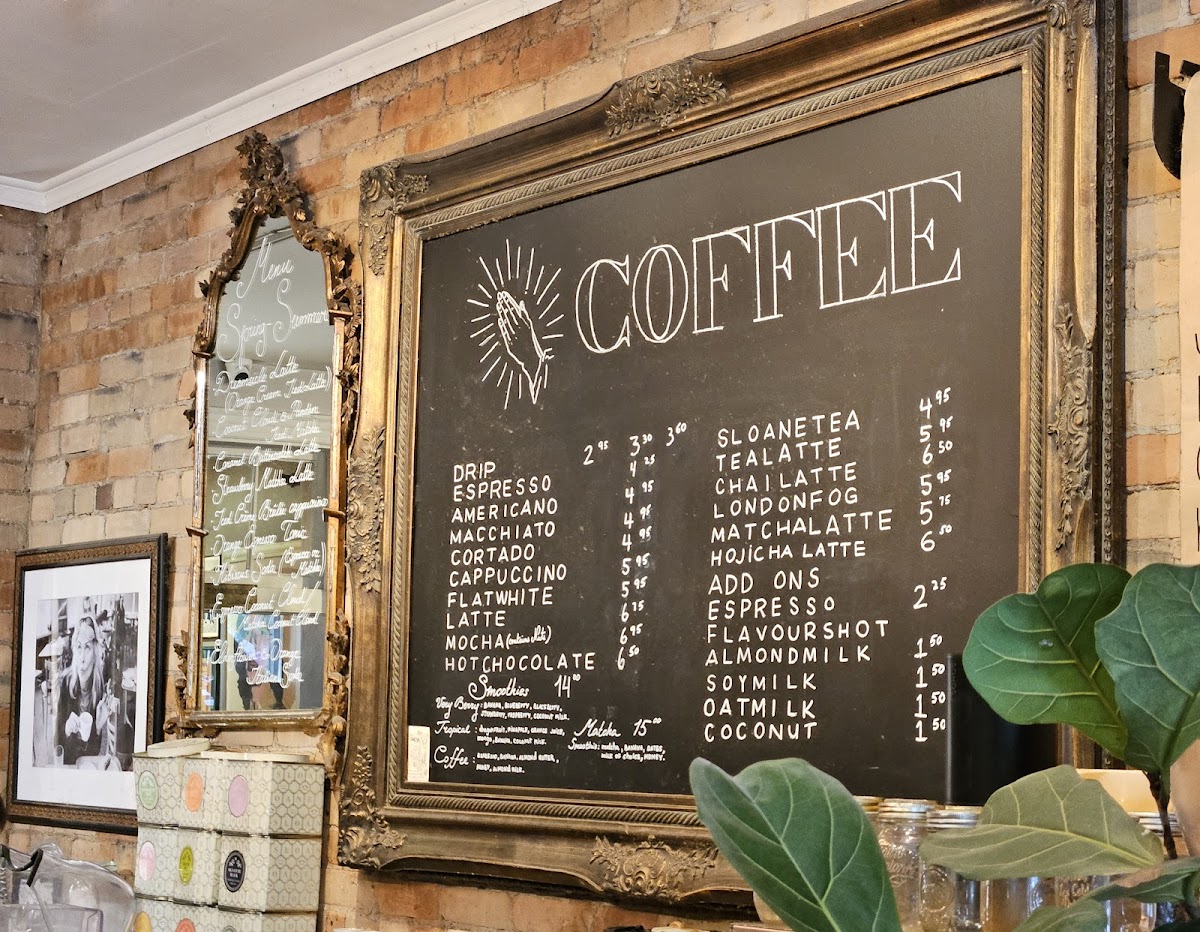 Menu
Spring Summer
Dreamsicle Latte
(Orange Cream Iced Latte)
Iced Matcha
Caramel Butterscotch Latte
Strawberry Matcha Latte
Iced Crème Brûlée
Orange Espresso Tonic
Hibiscus Soda (Espresso or Matcha)
Espresso Coconut Cloud
Matcha Coconut Cloud
Orange
Italian Soda
COFFEE
DRIP 2.95 3.30 3.60
ESPRESSO 4.25
AMERICANO 4.95
MACCHIATO 4.95
CORTADO 4.95
CAPPUCCINO 5.95
FLATWHITE 5.95
LATTE 6.15
MOCHA 6.95
HOTCHOCOLATE 6.50
Smoothies 14.00
Very Berry: BANANA, BLUEBERRY, BLACKBERRY,
STRAWBERRY, RASPBERRY, COCONUT MILK.
Tropical: PINEAPPLE, ORANGE JUICE,
MANGO, BANANA, COCONUT MILK.
Coffee: ESPRESSO, BANANA, ALMOND BUTTER,
HONEY, ALMOND MILK.
Matcha 15.00
Smoothie: MATCHA, BANANA, DATES,
MILK OF CHOICE, HONEY.
SLOANETEA 4.95
TEALATTE 5.95
CHAILATTE 6.50
LONDONFOG 5.95
MATCHALATTE 5.75
HOJICHA LATTE 6.50
ADD ONS
ESPRESSO 2.25
FLAVOURSHOT
ALMONDMILK 1.50
SOYMILK 1.50
OATMILK 1.50
COCONUT 1.50